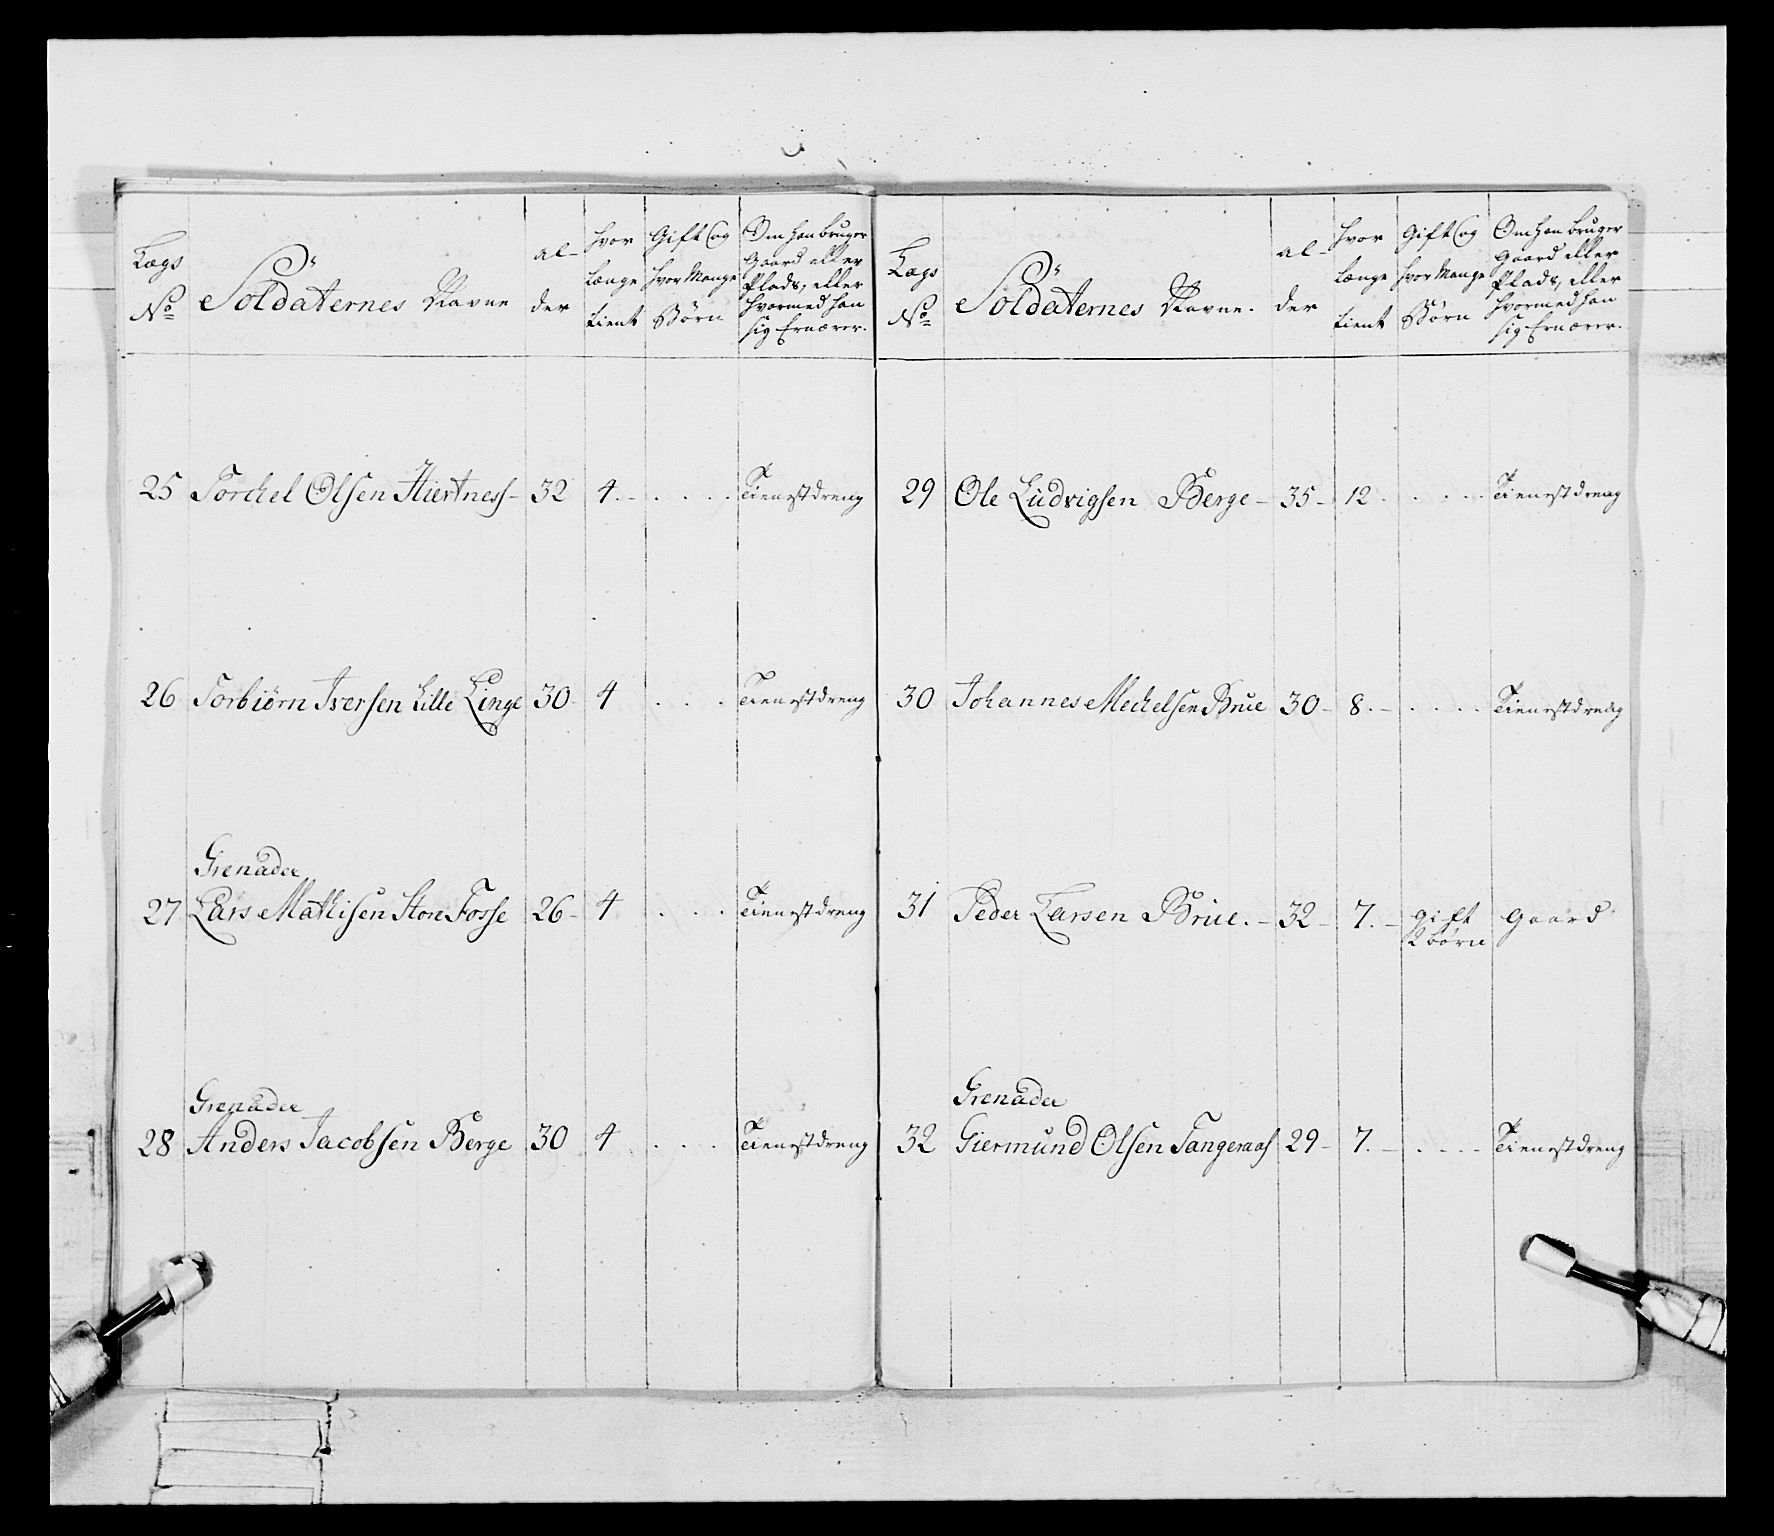 Lægs No
Soldaternes Navne
al-der
hvor længe tient
Gift og hvor Mange Børn
Om han bruger Gaard eller Plads, eller hvormed han sig Ernærer.
25 Torchel Olsen Hiertness- 32 4. - . . . . Tienestdreng
26 Torbiørn Iversen Lille Linge 30- 4 . . . Tienestdreng
Grenader
27 Lars Mathisen Stor Fosse 26- 4 . . . Tienestdreng
Grenader
28 Anders Jacobsen Berge 30 4 . . . Tienestdreng
Lægs No
Soldaternes Navne.
al-der
hvor længe tient
Gift og hvor Mange Børn
Om han bruger Gaard eller Plads, eller hvormed han sig Ernærer.
29 Ole Ludvigsen Berge- 35- 12 . . . . . Tienestdreng
30 Johannes Mechelsen Brue 30- 8. - . . . . Tienestdreng
31 Peder Larsen Brue. - 32- 7. - gift Gaard
2 børn
Grenader
32 Giermund Olsen Tangeraas 29- 7. - . . . . Tienestdreng